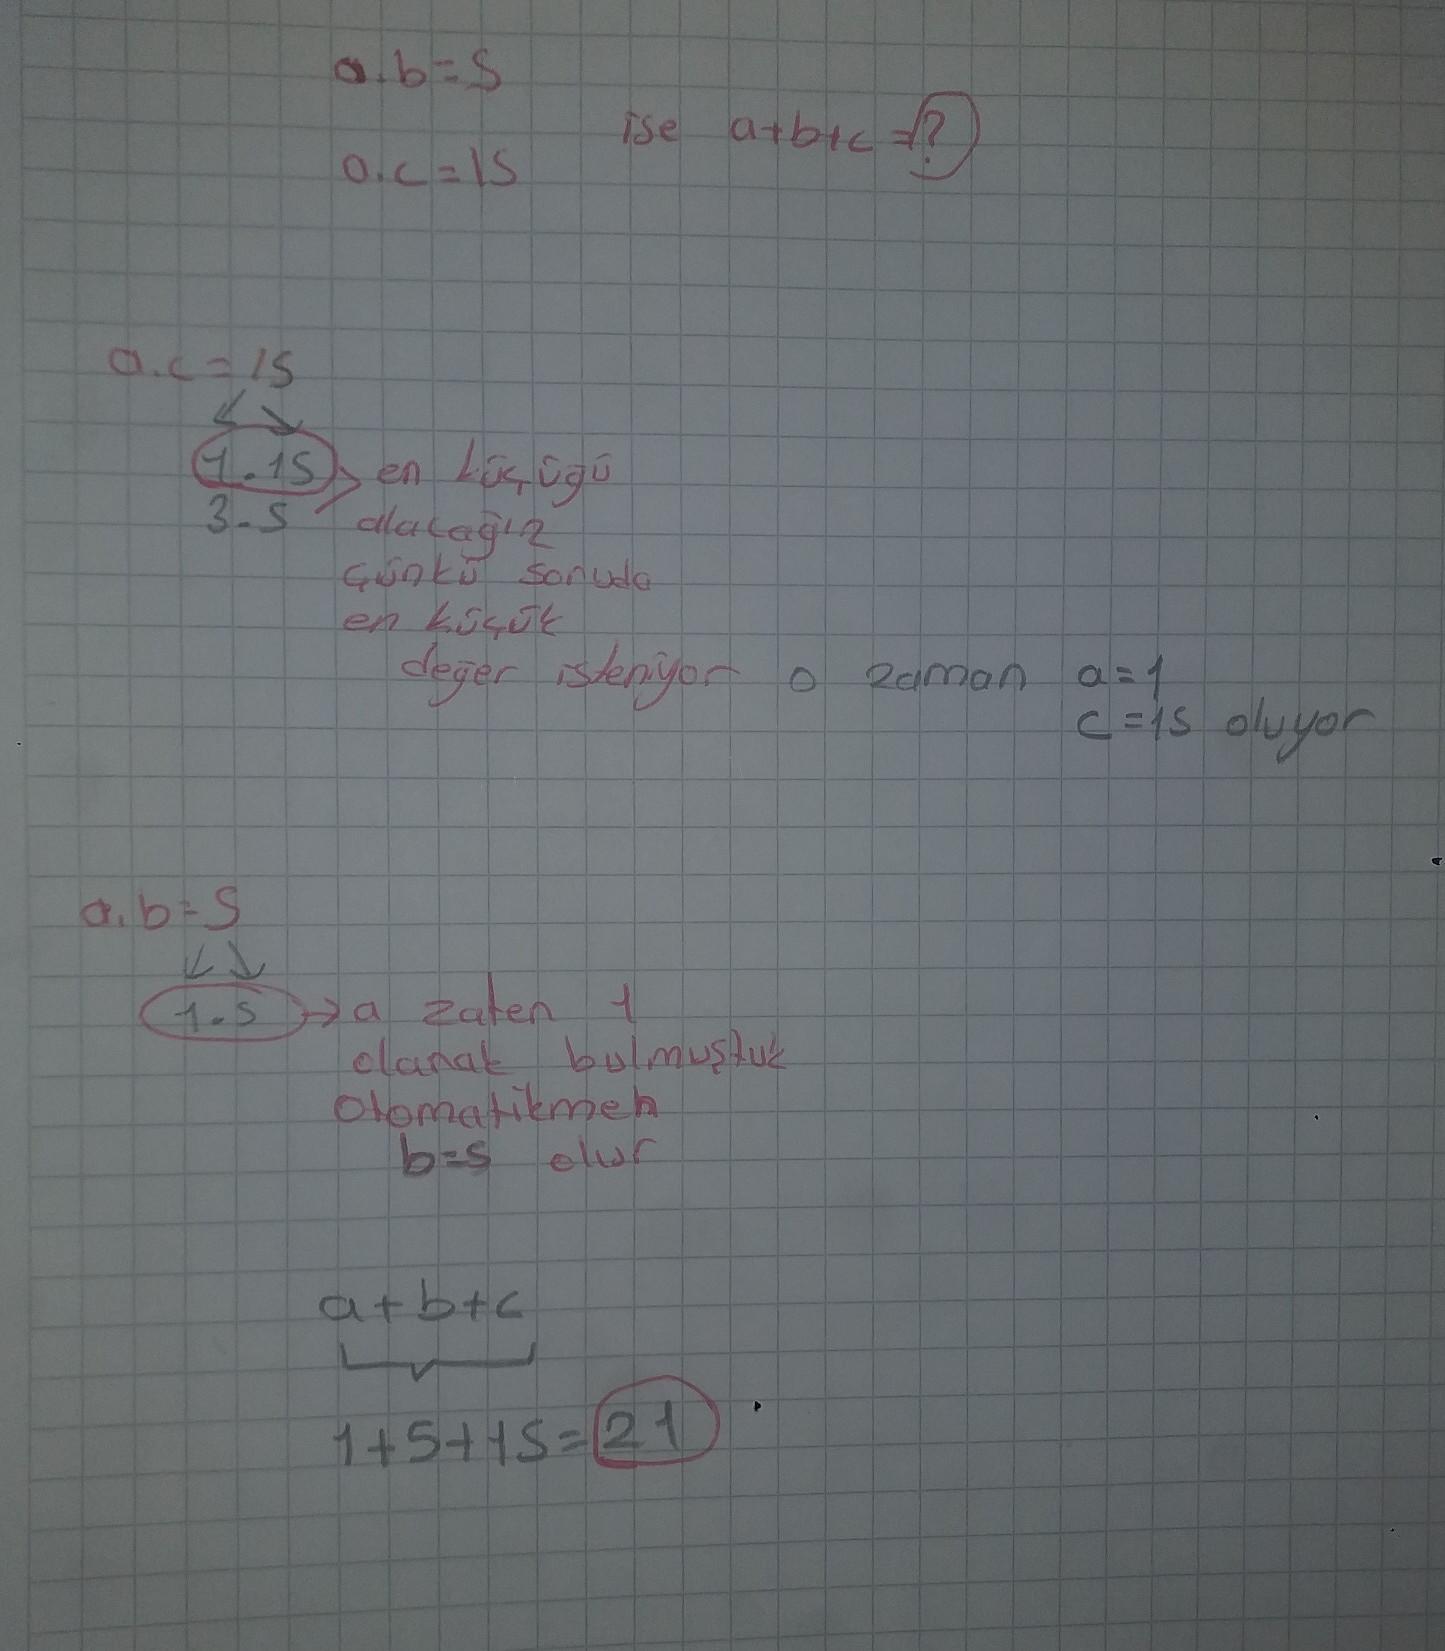 a.b=5
ise a+b+c=?
a.c=15
a.c=15
1.15 en küçüğü
3.5 alacağız
çünkü soruda
en küçük
değer isteniyor o zaman a=1
c=15 oluyor
a.b=5
1.5 → a zaten 1
olarak bulmuştuk
otomatikmen
b=5 olur
a+b+c
1+5+15=21